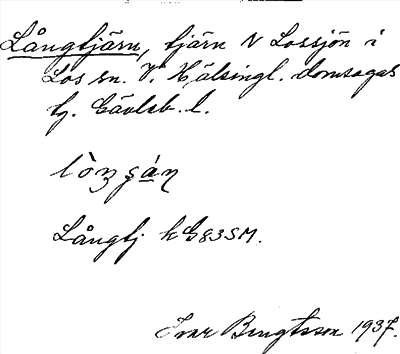 Långtjärn, tjärn N Lossjön i
Los sn. V. Hälsingl. domsagas
tg. Gävleb. l.
Långtj k G83SM.
Ivar Bengtsson 1937.